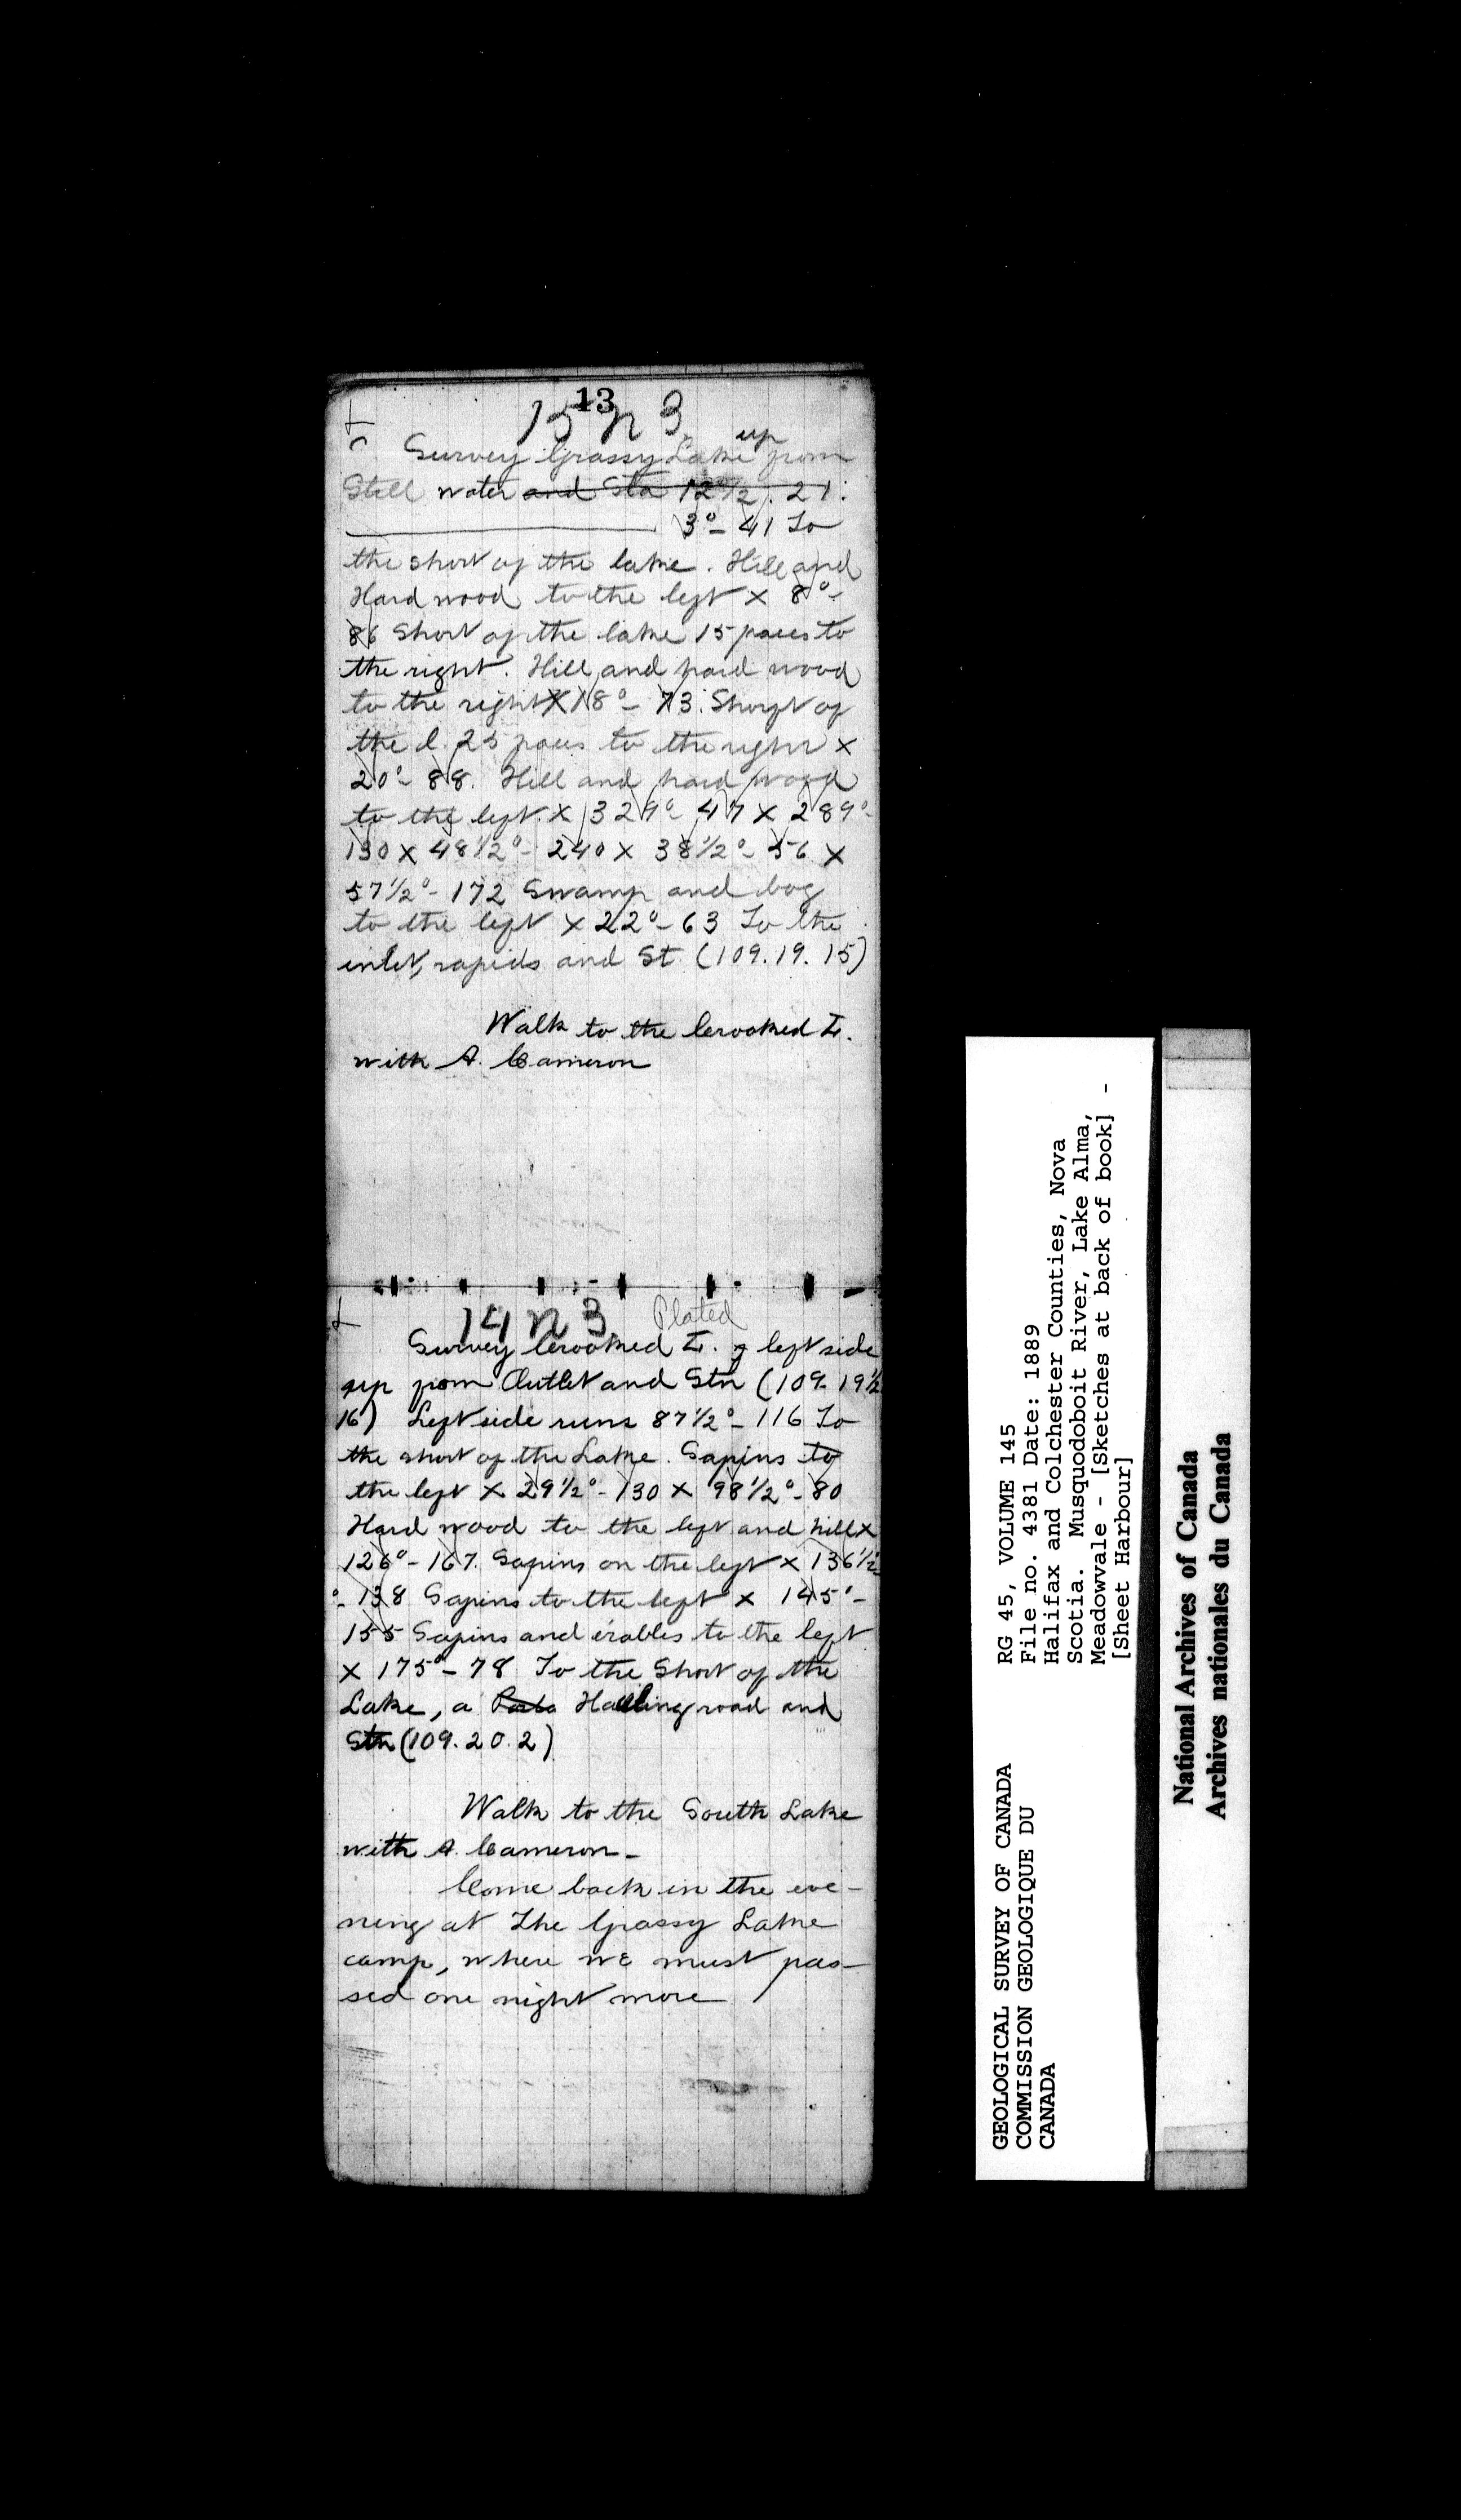 13
15 n 3
Survey Grassy Lake up from
Still water and Sta 12 1/2. 21.
3° - 41 To
the short of the lake. Hill and
Hard wood to the left x 8° -
86 Short of the lake 15 paces to
the right. Hill and hard wood
to the right X 18° - 73. Short of
the l. 25 paces to the right x
20° - 88. Hill and hard wood
to the left. x 329° - 47 x 289° -
130 x 48 1/2° - 240 x 38 1/2° - 56 x
57 1/2° - 172 Swamp and bog
to the left x 22° - 63 To the
inlet, rapids and St. (109.19.15)
Walk to the Crooked L.
with A. Cameron
14 n 3 Plated
Survey Crooked L. left side
up from Outlet and Stn (109. 19 1/2
16) Left side runs 87 1/2° - 116 To
the short of the Lake. Sapins to
the left x 29 1/2° - 130 x 98 1/2° - 80
Hard wood to the left and hill x
126° - 167. Sapins on the left x 136 1/2
° - 138 Sapins to the left x 145° -
155 Sapins and érables to the left
x 175° - 78 To the Short of the
Lake, a Hauling road and
Stn (109.20.2)
Walk to the South Lake
with A. Cameron -
Come back in the eve-
ning at the Grassy Lake
camp, where we must pas-
sed one night more
GEOLOGICAL SURVEY OF CANADA
COMMISSION GEOLOGIQUE DU
CANADA
RG 45, VOLUME 145
File no. 4381 Date: 1889
Halifax and Colchester Counties, Nova
Scotia. Musquodoboit River, Lake Alma,
Meadowvale - [Sketches at back of book] -
[Sheet Harbour]
National Archives of Canada
Archives nationales du Canada